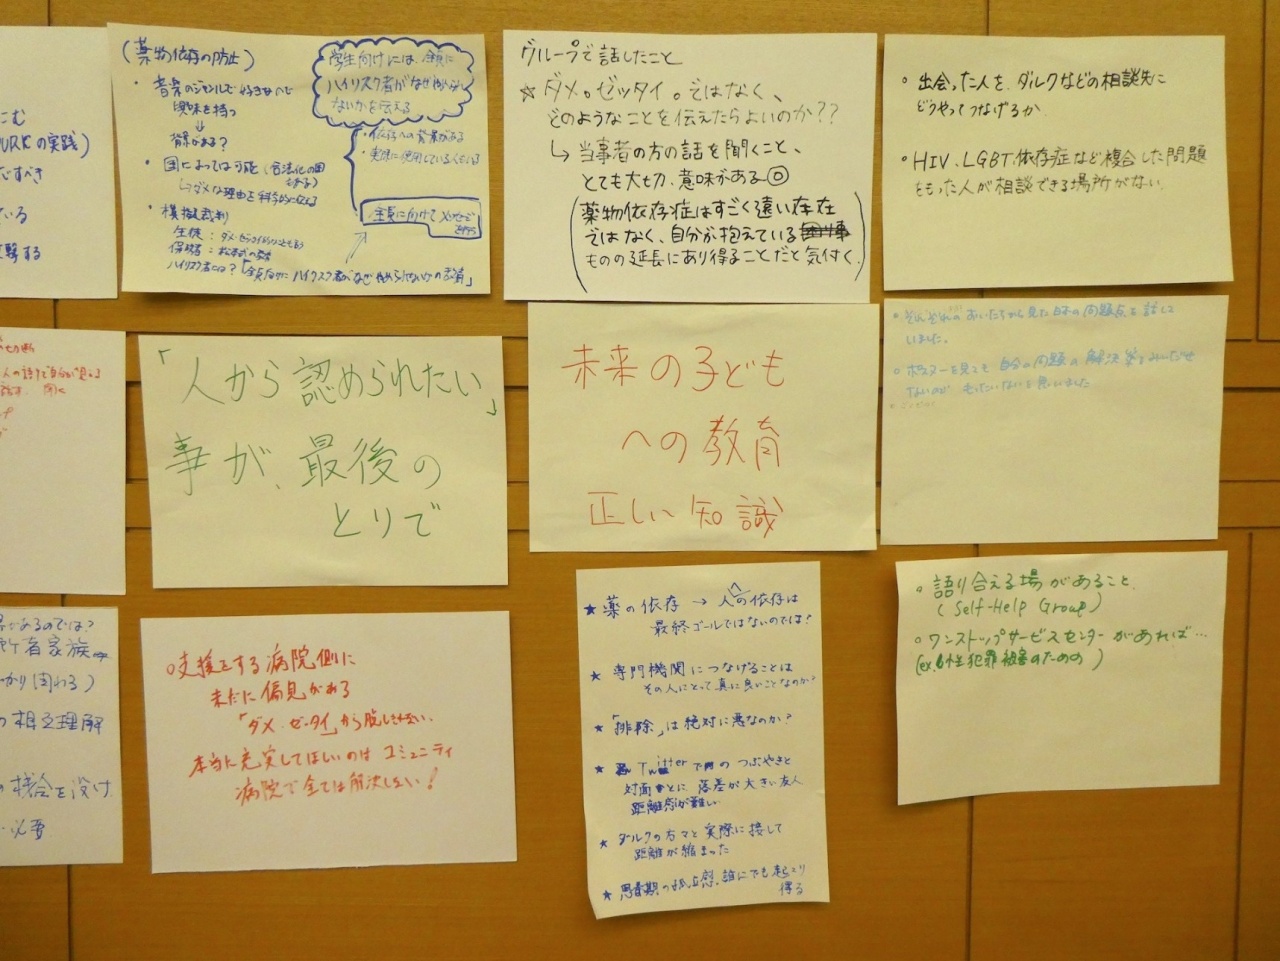 こむ
URKの実践)
だすべき
ている
する
(薬物依存の防止)
・音楽のジャンルで好きなヘと
興味を持つ
↓
背景がある?
・国によっては可能(合法化の国
↳ダメな理由を科学的に伝える
・模擬裁判
生徒:ダメ・ゼッタイ
保健者:
ハイリスク者とは?「全員向けにハイリスク者がなぜやめられないかの教育」
学生向けには、全員に
ハイリスク者がなぜ
ないかを伝える
・依存への背景がある
・実際に使用している人もいる
全員に向けてメッセージ
グループで話したこと
☆ダメ。ゼッタイ。ではなく、
どのようなことを伝えたらよいのか??
↳当事者の方の話を聞くこと、
とても大切、意味がある◎
(薬物依存症はすごく遠い存在
ではなく、自分が抱えている
ものの延長にあり得ることだと気付く)
・出会った人を、ダルクなどの相談先に
どうやってつなげるか
・HIV、LGBT、依存症など複合した問題
をもった人が相談できる場所がない。
「人から認められたい」
事が、最後の
とりで
未来の子ども
への教育
正しい知識
・それぞれのあいたちから見た日本の問題点を話して
いました。
・ポスターを見ても自分の問題の解決策をみいだせ
ないのが もったいないと思いました
があるのでは?
所者家族
かり関わる)
の相互理解
の機会を設け
必要
○支援をする病院側に
未だに偏見がある
「ダメ・ゼッタイ」から脱しきれない。
本当に充実してほしいのはコミュニティ
病院で全ては解決しない!
★薬の依存→人への依存は
最終ゴールではないのでは?
★専門機関につなげることは
その人にとって真に良いことなのか?
★「排除」は絶対に悪なのか?
★Twitterでのつぶやきと
対面とに、落差が大きい友人
距離感が難しい
★ダルクの方々と実際に接して
距離が縮まった
★思春期の孤立感、誰にでも起こり
得る
・語り合える場があること、
(Self-Help Group)
・ワンストップサービスセンターがあれば…
(ex.性犯罪被害のための)